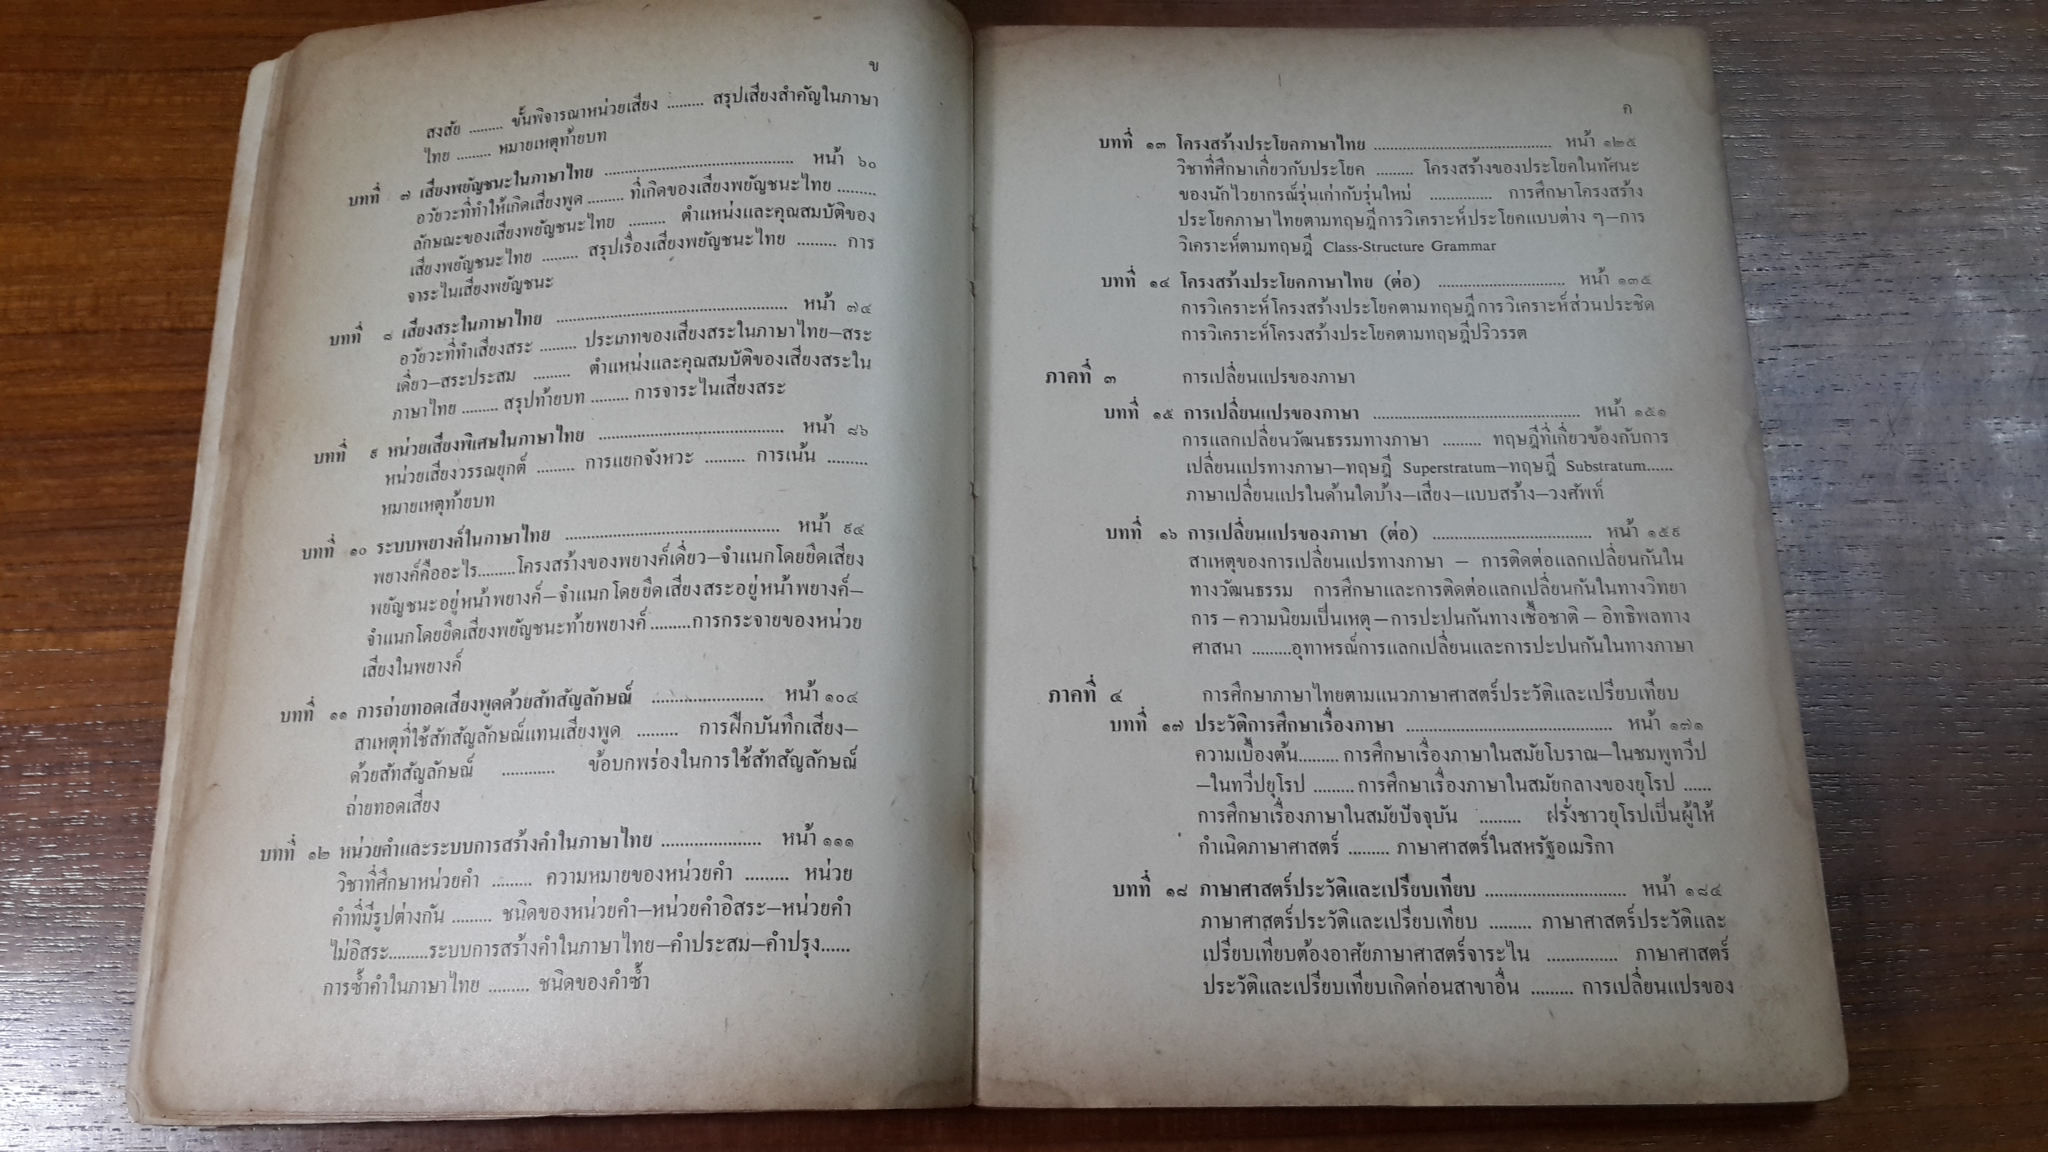 ข
สงสัย ......... ขั้นพิจารณาหน่วยเสียง ......... สรุปเสียงสำคัญในภาษา
ไทย ......... หมายเหตุท้ายบท
บทที่ ๗ เสียงพยัญชนะในภาษาไทย ............................................. หน้า ๖๐
อวัยวะที่ทำให้เกิดเสียงพูด ......... ที่เกิดของเสียงพยัญชนะไทย .........
ลักษณะของเสียงพยัญชนะไทย ......... ตำแหน่งและคุณสมบัติของ
เสียงพยัญชนะไทย ......... สรุปเรื่องเสียงพยัญชนะไทย ......... การ
จาระไนเสียงพยัญชนะ
บทที่ ๘ เสียงสระในภาษาไทย ....................................................... หน้า ๗๔
อวัยวะที่ทำเสียงสระ ......... ประเภทของเสียงสระในภาษาไทย–สระ
เดี่ยว–สระประสม ......... ตำแหน่งและคุณสมบัติของเสียงสระใน
ภาษาไทย ......... สรุปท้ายบท ......... การจาระไนเสียงสระ
บทที่ ๙ หน่วยเสียงพิเศษในภาษาไทย ............................................. หน้า ๘๖
หน่วยเสียงวรรณยุกต์ ......... การแยกจังหวะ ......... การเน้น .........
หมายเหตุท้ายบท
บทที่ ๑๐ ระบบพยางค์ในภาษาไทย ............................................. หน้า ๙๔
พยางค์คืออะไร.........โครงสร้างของพยางค์เดี่ยว–จำแนกโดยยึดเสียง
พยัญชนะอยู่หน้าพยางค์–จำแนกโดยยึดเสียงสระอยู่หน้าพยางค์–
จำแนกโดยยึดเสียงพยัญชนะท้ายพยางค์.........การกระจายของหน่วย
เสียงในพยางค์
บทที่ ๑๑ การถ่ายทอดเสียงพูดด้วยสัทสัญลักษณ์ ........................ หน้า ๑๐๔
สาเหตุที่ใช้สัทสัญลักษณ์แทนเสียงพูด ......... การฝึกบันทึกเสียง–
ด้วยสัทสัญลักษณ์ ............ ข้อบกพร่องในการใช้สัทสัญลักษณ์
ถ่ายทอดเสียง
บทที่ ๑๒ หน่วยคำและระบบการสร้างคำในภาษาไทย ..................... หน้า ๑๑๑
วิชาที่ศึกษาหน่วยคำ ......... ความหมายของหน่วยคำ ......... หน่วย
คำที่มีรูปต่างกัน ......... ชนิดของหน่วยคำ–หน่วยคำอิสระ–หน่วยคำ
ไม่อิสระ.........ระบบการสร้างคำในภาษาไทย–คำประสม–คำปรุง......
การซ้ำคำในภาษาไทย ......... ชนิดของคำซ้ำ
ค
บทที่ ๑๓ โครงสร้างประโยคภาษาไทย ............................................. หน้า ๑๒๕
วิชาที่ศึกษาเกี่ยวกับประโยค ......... โครงสร้างของประโยคในทัศนะ
ของนักไวยากรณ์รุ่นเก่ากับรุ่นใหม่ ............... การศึกษาโครงสร้าง
ประโยคภาษาไทยตามทฤษฎีการวิเคราะห์ประโยคแบบต่าง ๆ–การ
วิเคราะห์ตามทฤษฎี Class-Structure Grammar
บทที่ ๑๔ โครงสร้างประโยคภาษาไทย (ต่อ) .............................. หน้า ๑๓๕
การวิเคราะห์โครงสร้างประโยคตามทฤษฎีการวิเคราะห์ส่วนประชิด
การวิเคราะห์โครงสร้างประโยคตามทฤษฎีปริวรรต
ภาคที่ ๓ การเปลี่ยนแปรของภาษา
บทที่ ๑๕ การเปลี่ยนแปรของภาษา ............................................. หน้า ๑๕๑
การแลกเปลี่ยนวัฒนธรรมทางภาษา ......... ทฤษฎีที่เกี่ยวข้องกับการ
เปลี่ยนแปรทางภาษา–ทฤษฎี Superstratum–ทฤษฎี Substratum......
ภาษาเปลี่ยนแปรในด้านใดบ้าง–เสียง–แบบสร้าง–วงศัพท์
บทที่ ๑๖ การเปลี่ยนแปรของภาษา (ต่อ) .................................... หน้า ๑๕๙
สาเหตุของการเปลี่ยนแปรทางภาษา – การติดต่อแลกเปลี่ยนกันใน
ทางวัฒนธรรม การศึกษาและการติดต่อแลกเปลี่ยนกันในทางวิทยา
การ – ความนิยมเป็นเหตุ – การปะปนกันทางเชื้อชาติ – อิทธิพลทาง
ศาสนา .........อุทาหรณ์การแลกเปลี่ยนและการปะปนกันในทางภาษา
ภาคที่ ๔ การศึกษาภาษาไทยตามแนวภาษาศาสตร์ประวัติและเปรียบเทียบ
บทที่ ๑๗ ประวัติการศึกษาเรื่องภาษา ............................................. หน้า ๑๗๑
ความเบื้องต้น......... การศึกษาเรื่องภาษาในสมัยโบราณ–ในชมพูทวีป
–ในทวีปยุโรป ......... การศึกษาเรื่องภาษาในสมัยกลางของยุโรป ......
การศึกษาเรื่องภาษาในสมัยปัจจุบัน ......... ฝรั่งชาวยุโรปเป็นผู้ให้
กำเนิดภาษาศาสตร์ ......... ภาษาศาสตร์ในสหรัฐอเมริกา
บทที่ ๑๘ ภาษาศาสตร์ประวัติและเปรียบเทียบ .............................. หน้า ๑๘๔
ภาษาศาสตร์ประวัติและเปรียบเทียบ ......... ภาษาศาสตร์ประวัติและ
เปรียบเทียบต้องอาศัยภาษาศาสตร์จาระไน ............... ภาษาศาสตร์
ประวัติและเปรียบเทียบเกิดก่อนสาขาอื่น ......... การเปลี่ยนแปรของ